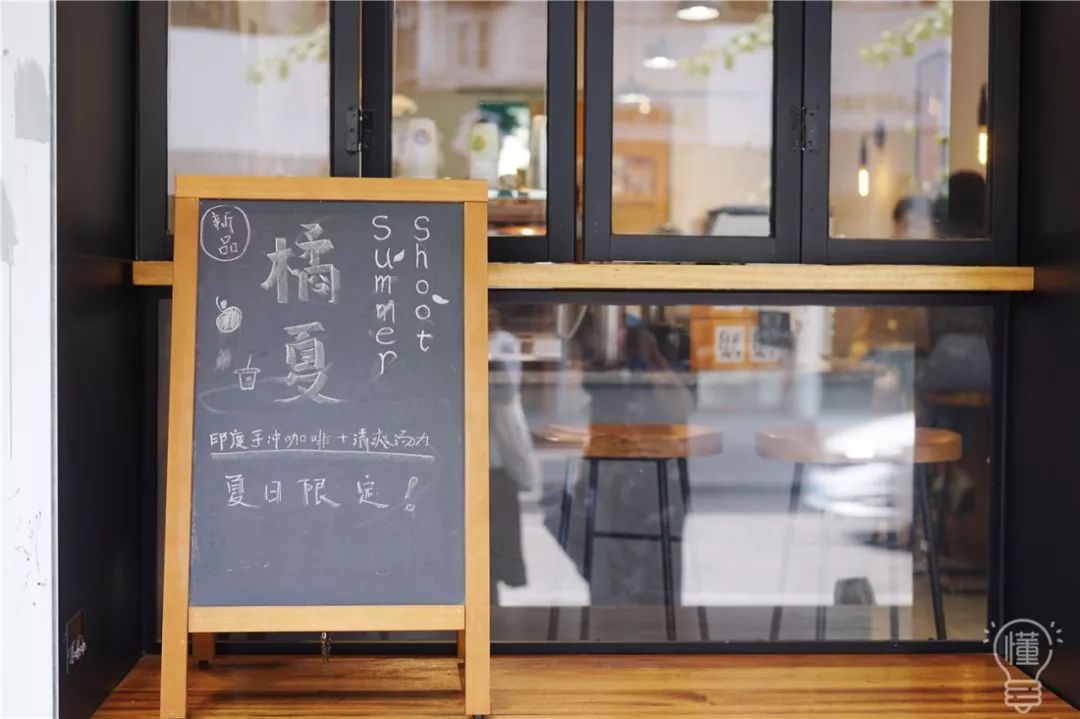 新品
橘夏
Summer
Shoot
印度手冲咖啡+清爽活力
夏日限定！
懂